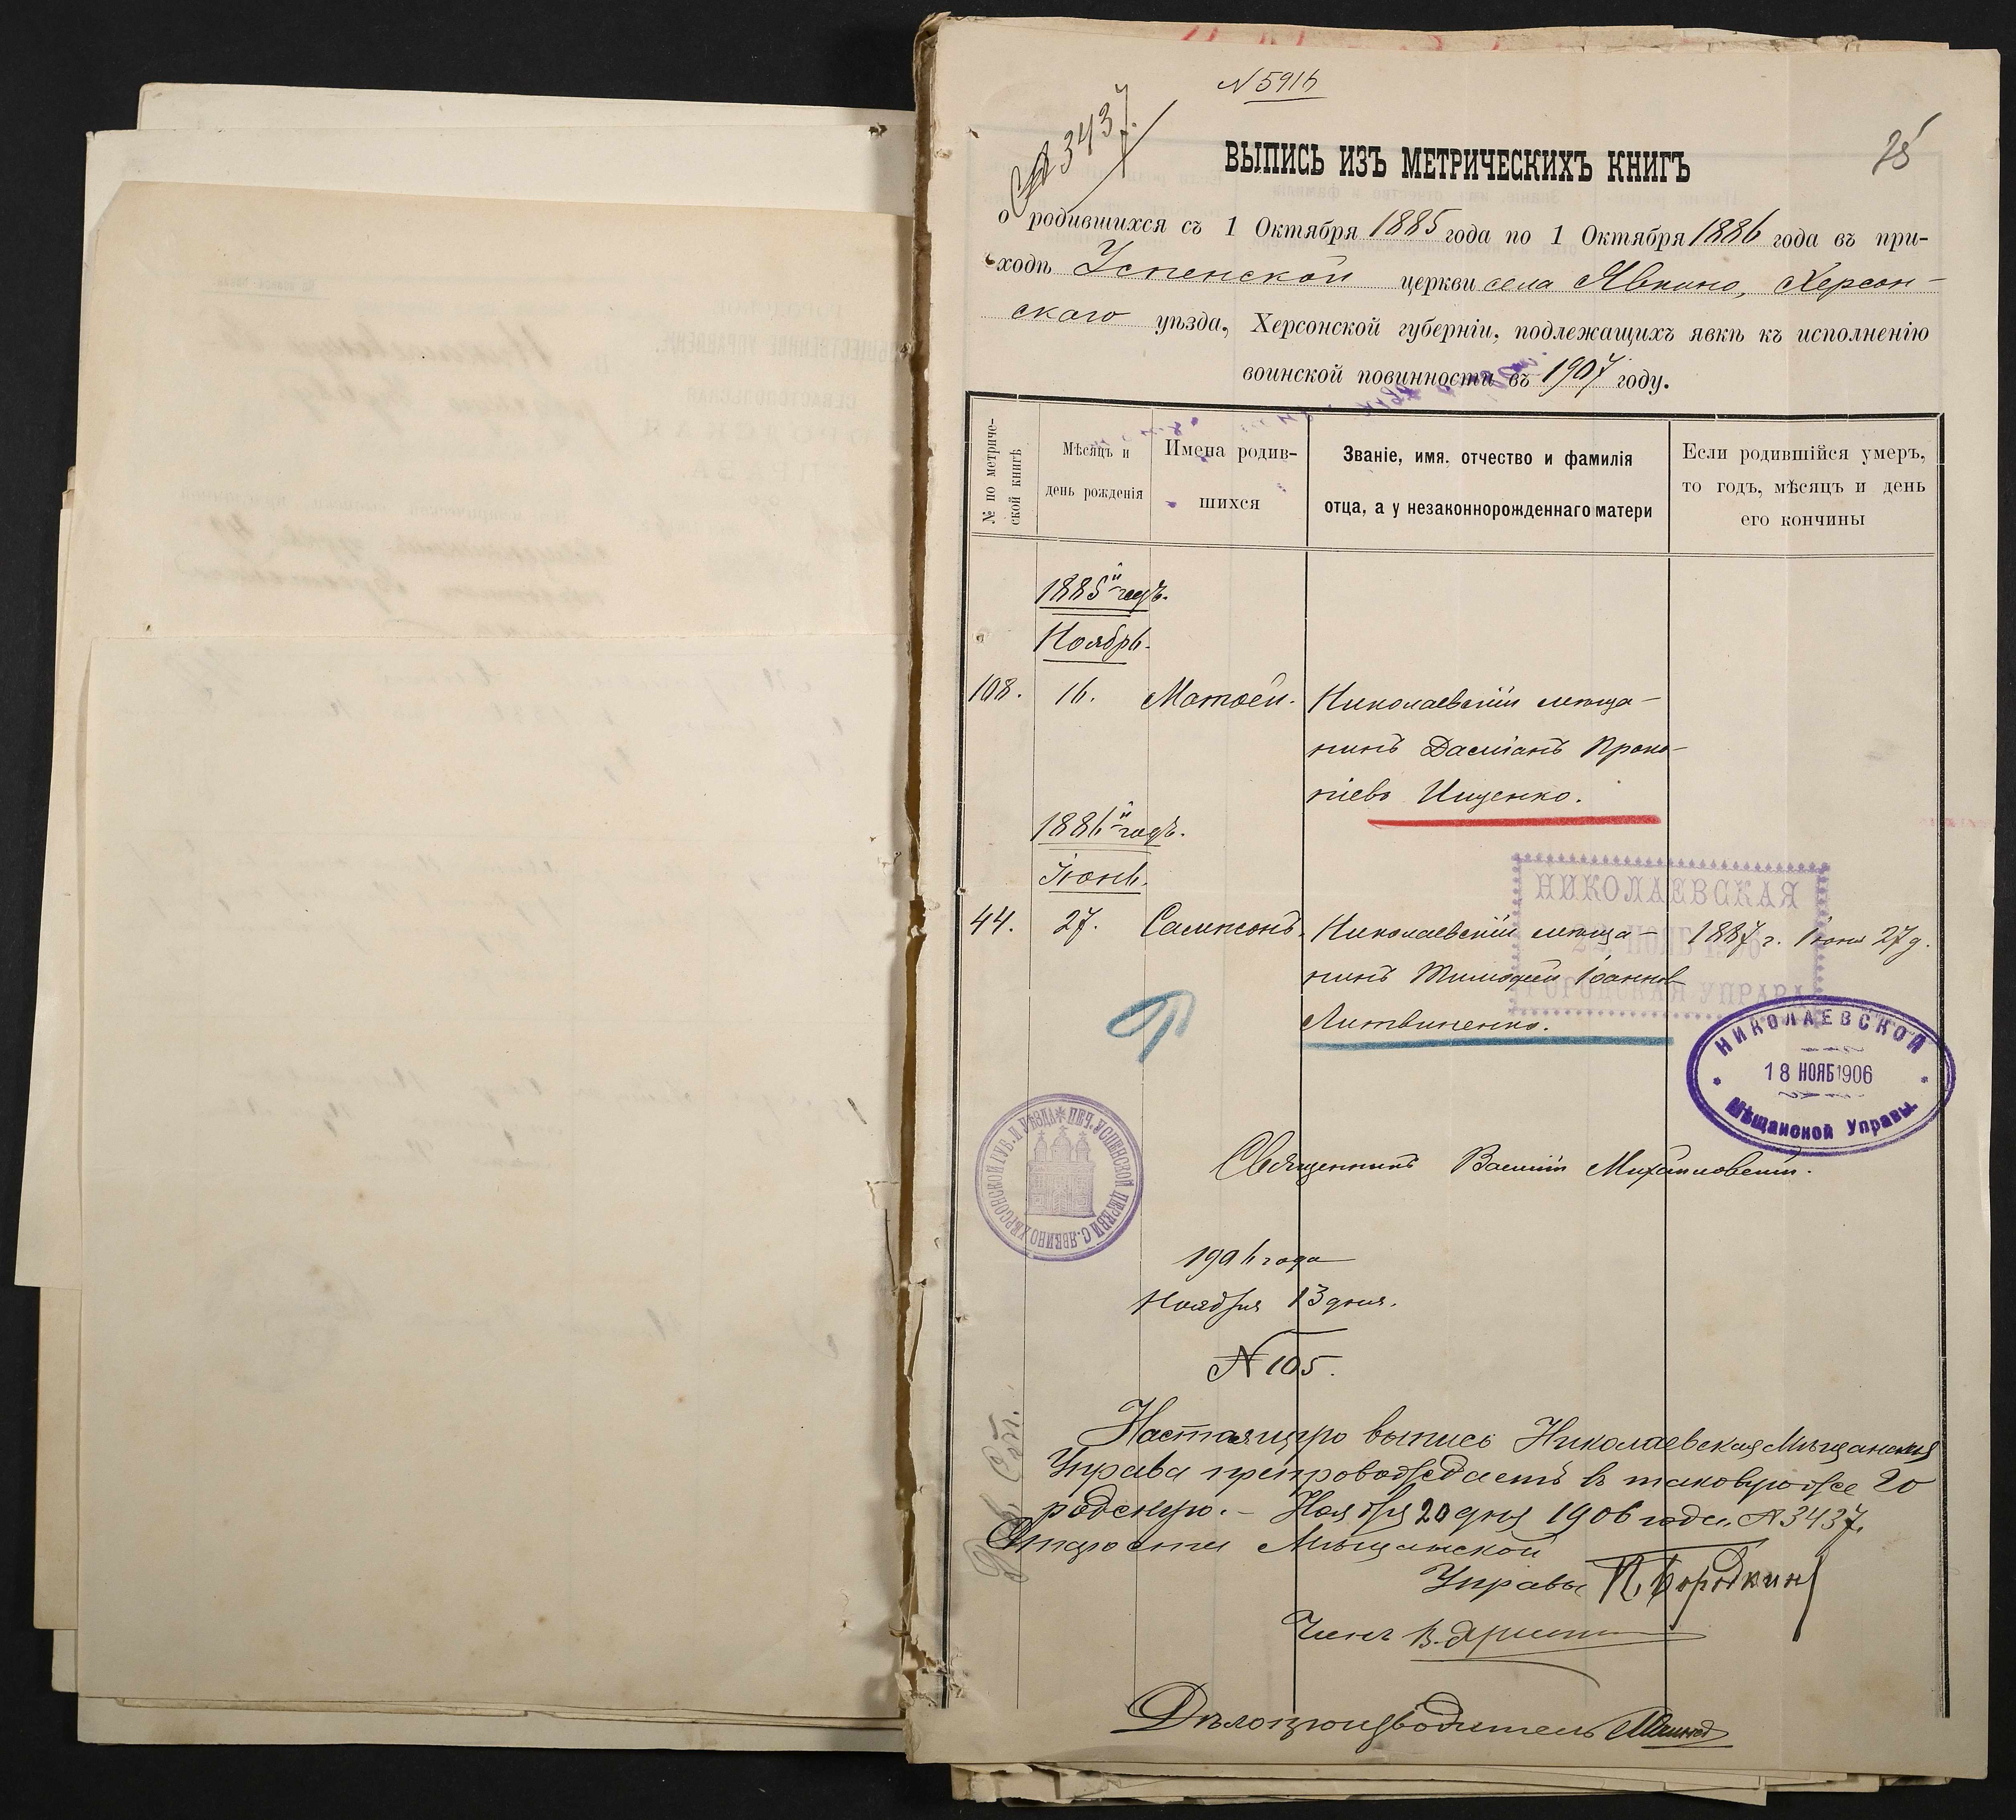 N 5916
№ 3437.
25
ВЫПИСЬ ИЗЪ МЕТРИЧЕСКИХЪ КНИГЪ
о родившихся съ 1 Октября 1885 года по 1 Октября 1886 года въ при-
ходѣ Успенской церкви села Явкино, Херсон-
скаго уѣзда, Херсонской губерніи, подлежащихъ явкѣ къ исполненію
воинской повинности въ 1907 году.
№ по метриче-
ской книгѣ
Мѣсяцъ и
день рожденія
Имена родив-
шихся
Званіе, имя, отчество и фамилія
отца, а у незаконнорожденнаго матери
Если родившійся умеръ,
то годъ, мѣсяцъ и день
его кончины
1885й годъ.
Ноябрь.
108. 16. Матѳей. Николаевскій мѣща-
нинъ Даміанъ Проко-
піевъ Ищенко.
1886й годъ.
Іюнь.
44. 27. Сампсонъ. Николаевскій мѣща- 1887 г. Іюня 27 д.
нинъ Тимофей Іоанновъ
Литвиненко.
НИКОЛАЕВСКАЯ
НОЯБ 1906
ГОРОДСКАЯ УПРАВА
НИКОЛАЕВСКОЙ
18 НОЯБ 1906
Мѣщанской Управы.
ПЕЧ. УСПЕНСКОЙ ЦЕРКВИ С. ЯВКИНО ХЕРСОНСКОЙ ГУБ. И УѢЗДА
Священникъ Василій Михайловскій.
1906 года
Ноября 13 дня.
N 105.
Настоящую выпись Николаевская Мѣщанская
Управа препровождаетъ въ таковую же Го
родскую. - Ноября 20 дня 1906 года. № 3437.
Староста Мѣщанской
Управы П. Бородкинъ
Членъ В.
Дѣлопроизводитель